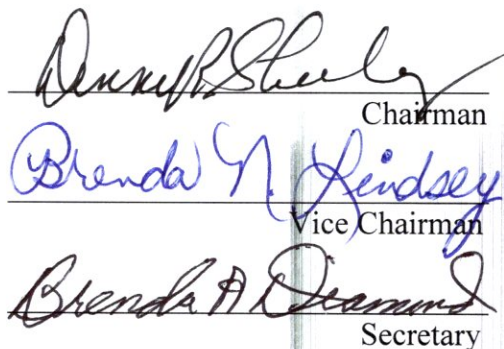 Chairman
Brenda N. Lindsey
Vice Chairman
Brenda A Diamond
Secretary